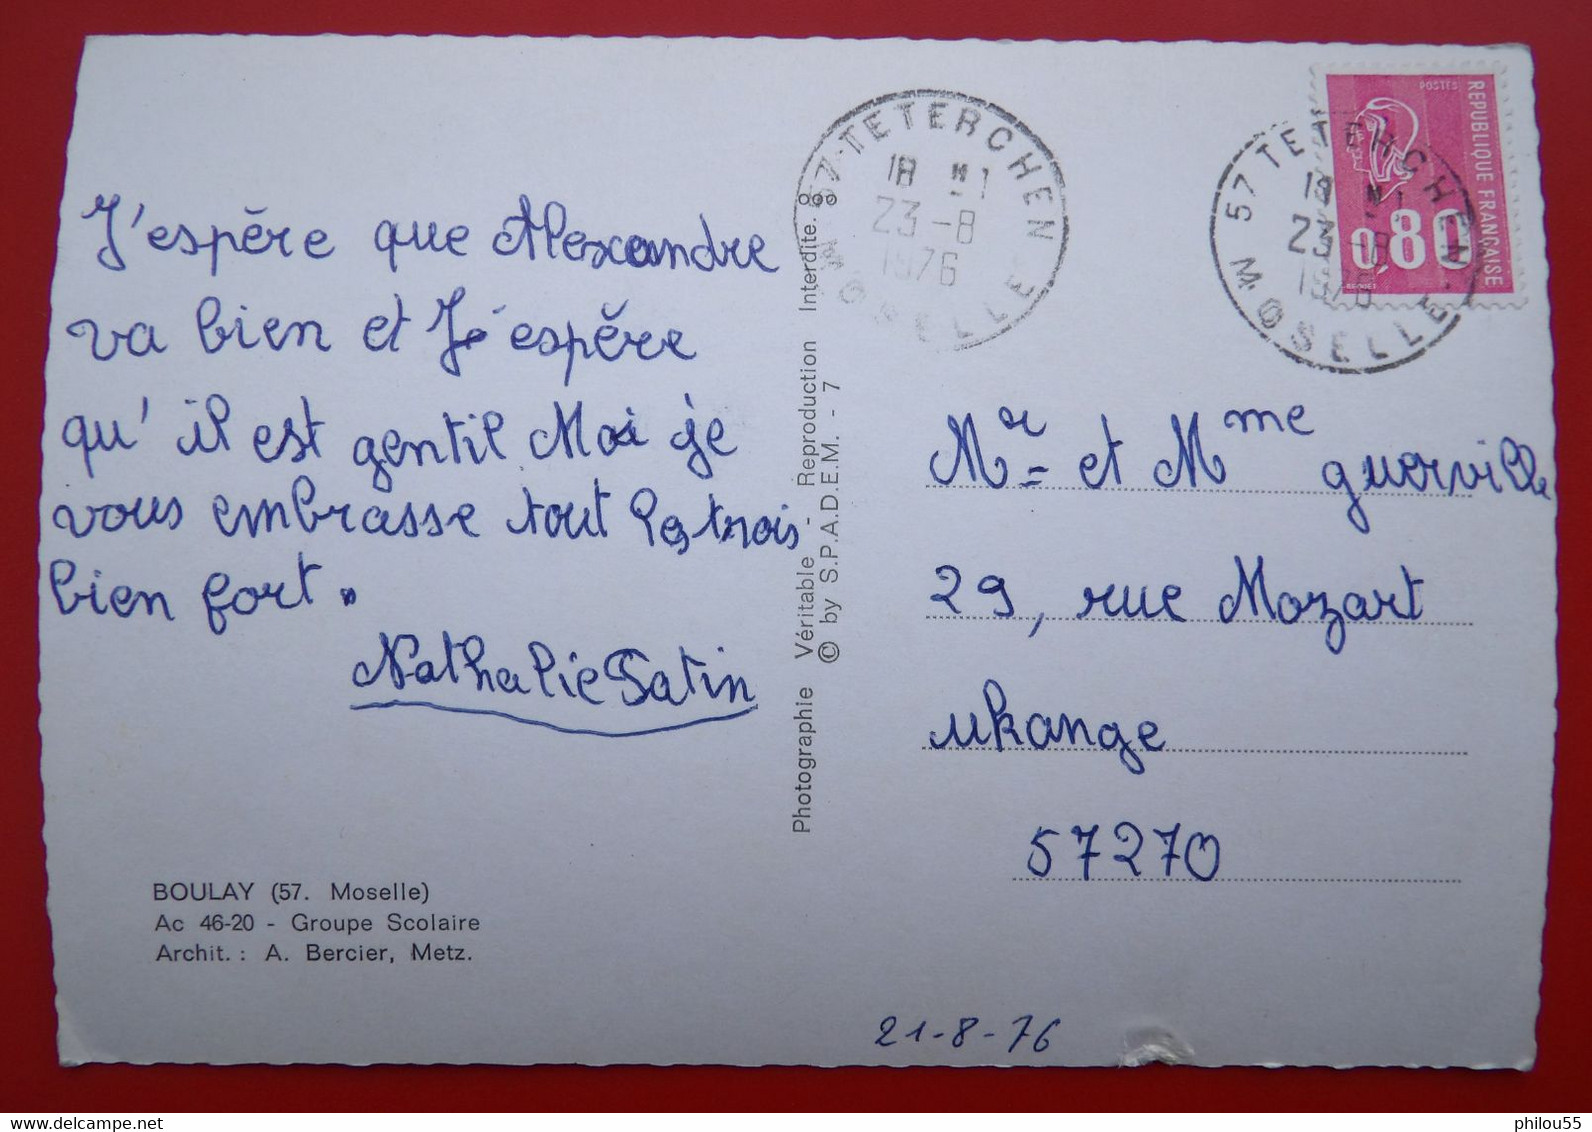 J'espère que Alexandre
va bien et Je espère
qu'il est gentil Moi je
vous embrasse tout les trois
bien fort.
Nathalie Satin
BOULAY (57. Moselle)
Ac 46-20 - Groupe Scolaire
Archit. : A. Bercier, Metz.
Photographie Véritable - Reproduction Interdite.
© by S.P.A.D.E.M. - 7
57 TETERCHEN
18 H
23-8
1976
MOSELLE
57 TETERCHEN
18 H
23-8
1976
MOSELLE
POSTES
REPUBLIQUE FRANÇAISE
0,80
Mr et Mme guerville
29, rue Mozart
ukange
57270
21-8-76
www.delcampe.net
philou55